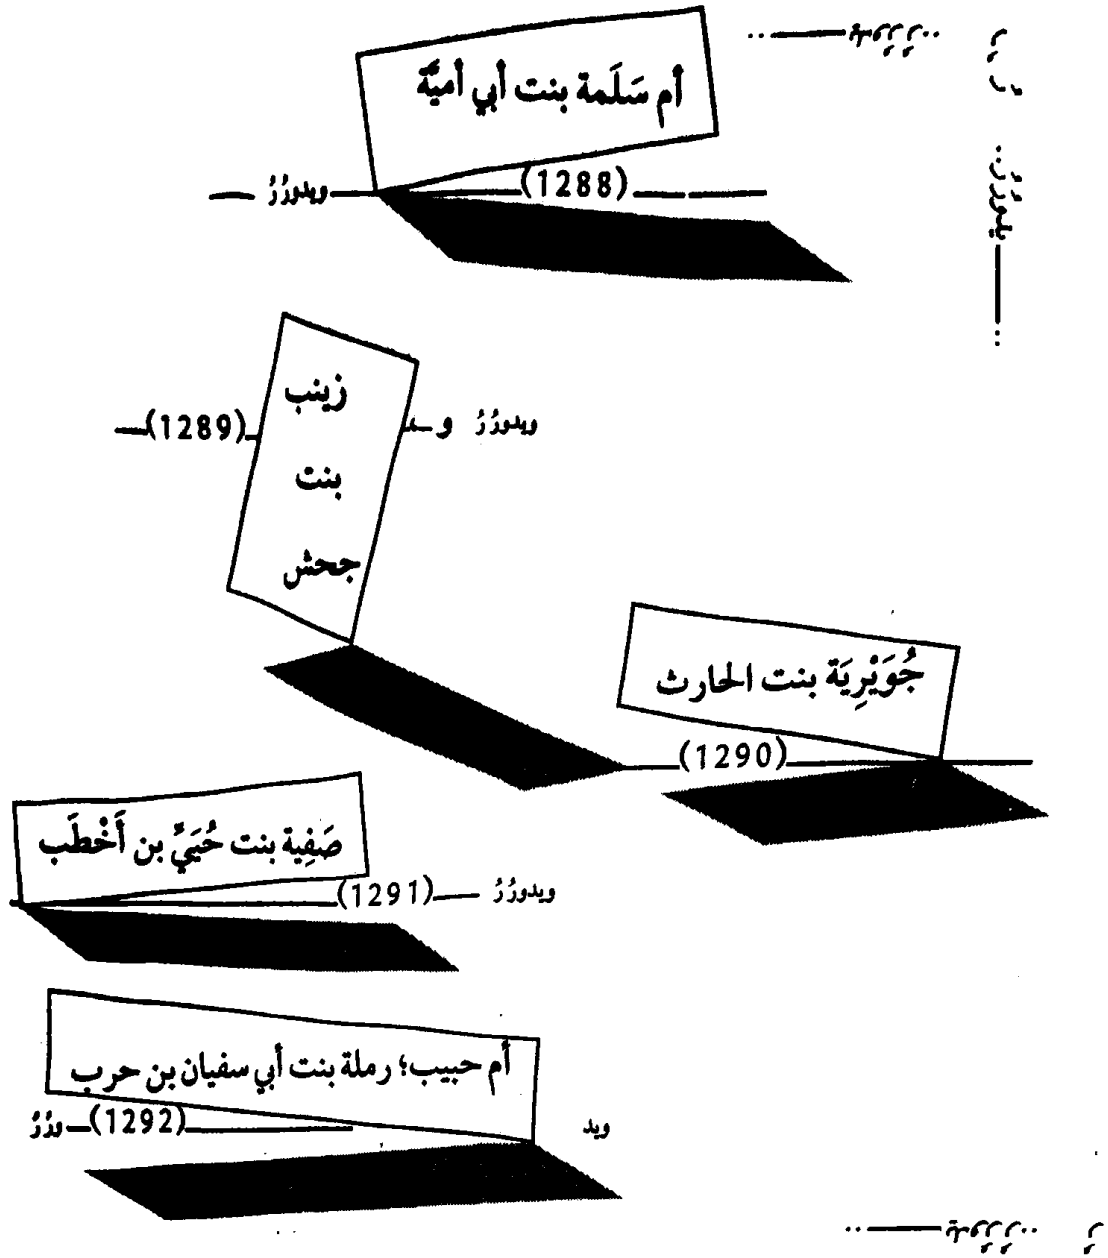 أم سَلَمة بنت أبي أميَّة
ويدورُرُ (1288)
زينب
بنت
جحش
(1289) و ويدورُرُ
جُوَيْرِيَة بنت الحارث
(1290)
صَفِية بنت حُيَيِّ بن أَخْطَب
(1291) ويدورُرُ
أم حبيب؛ رملة بنت أبي سفيان بن حرب
ورُرُ (1292) ويد